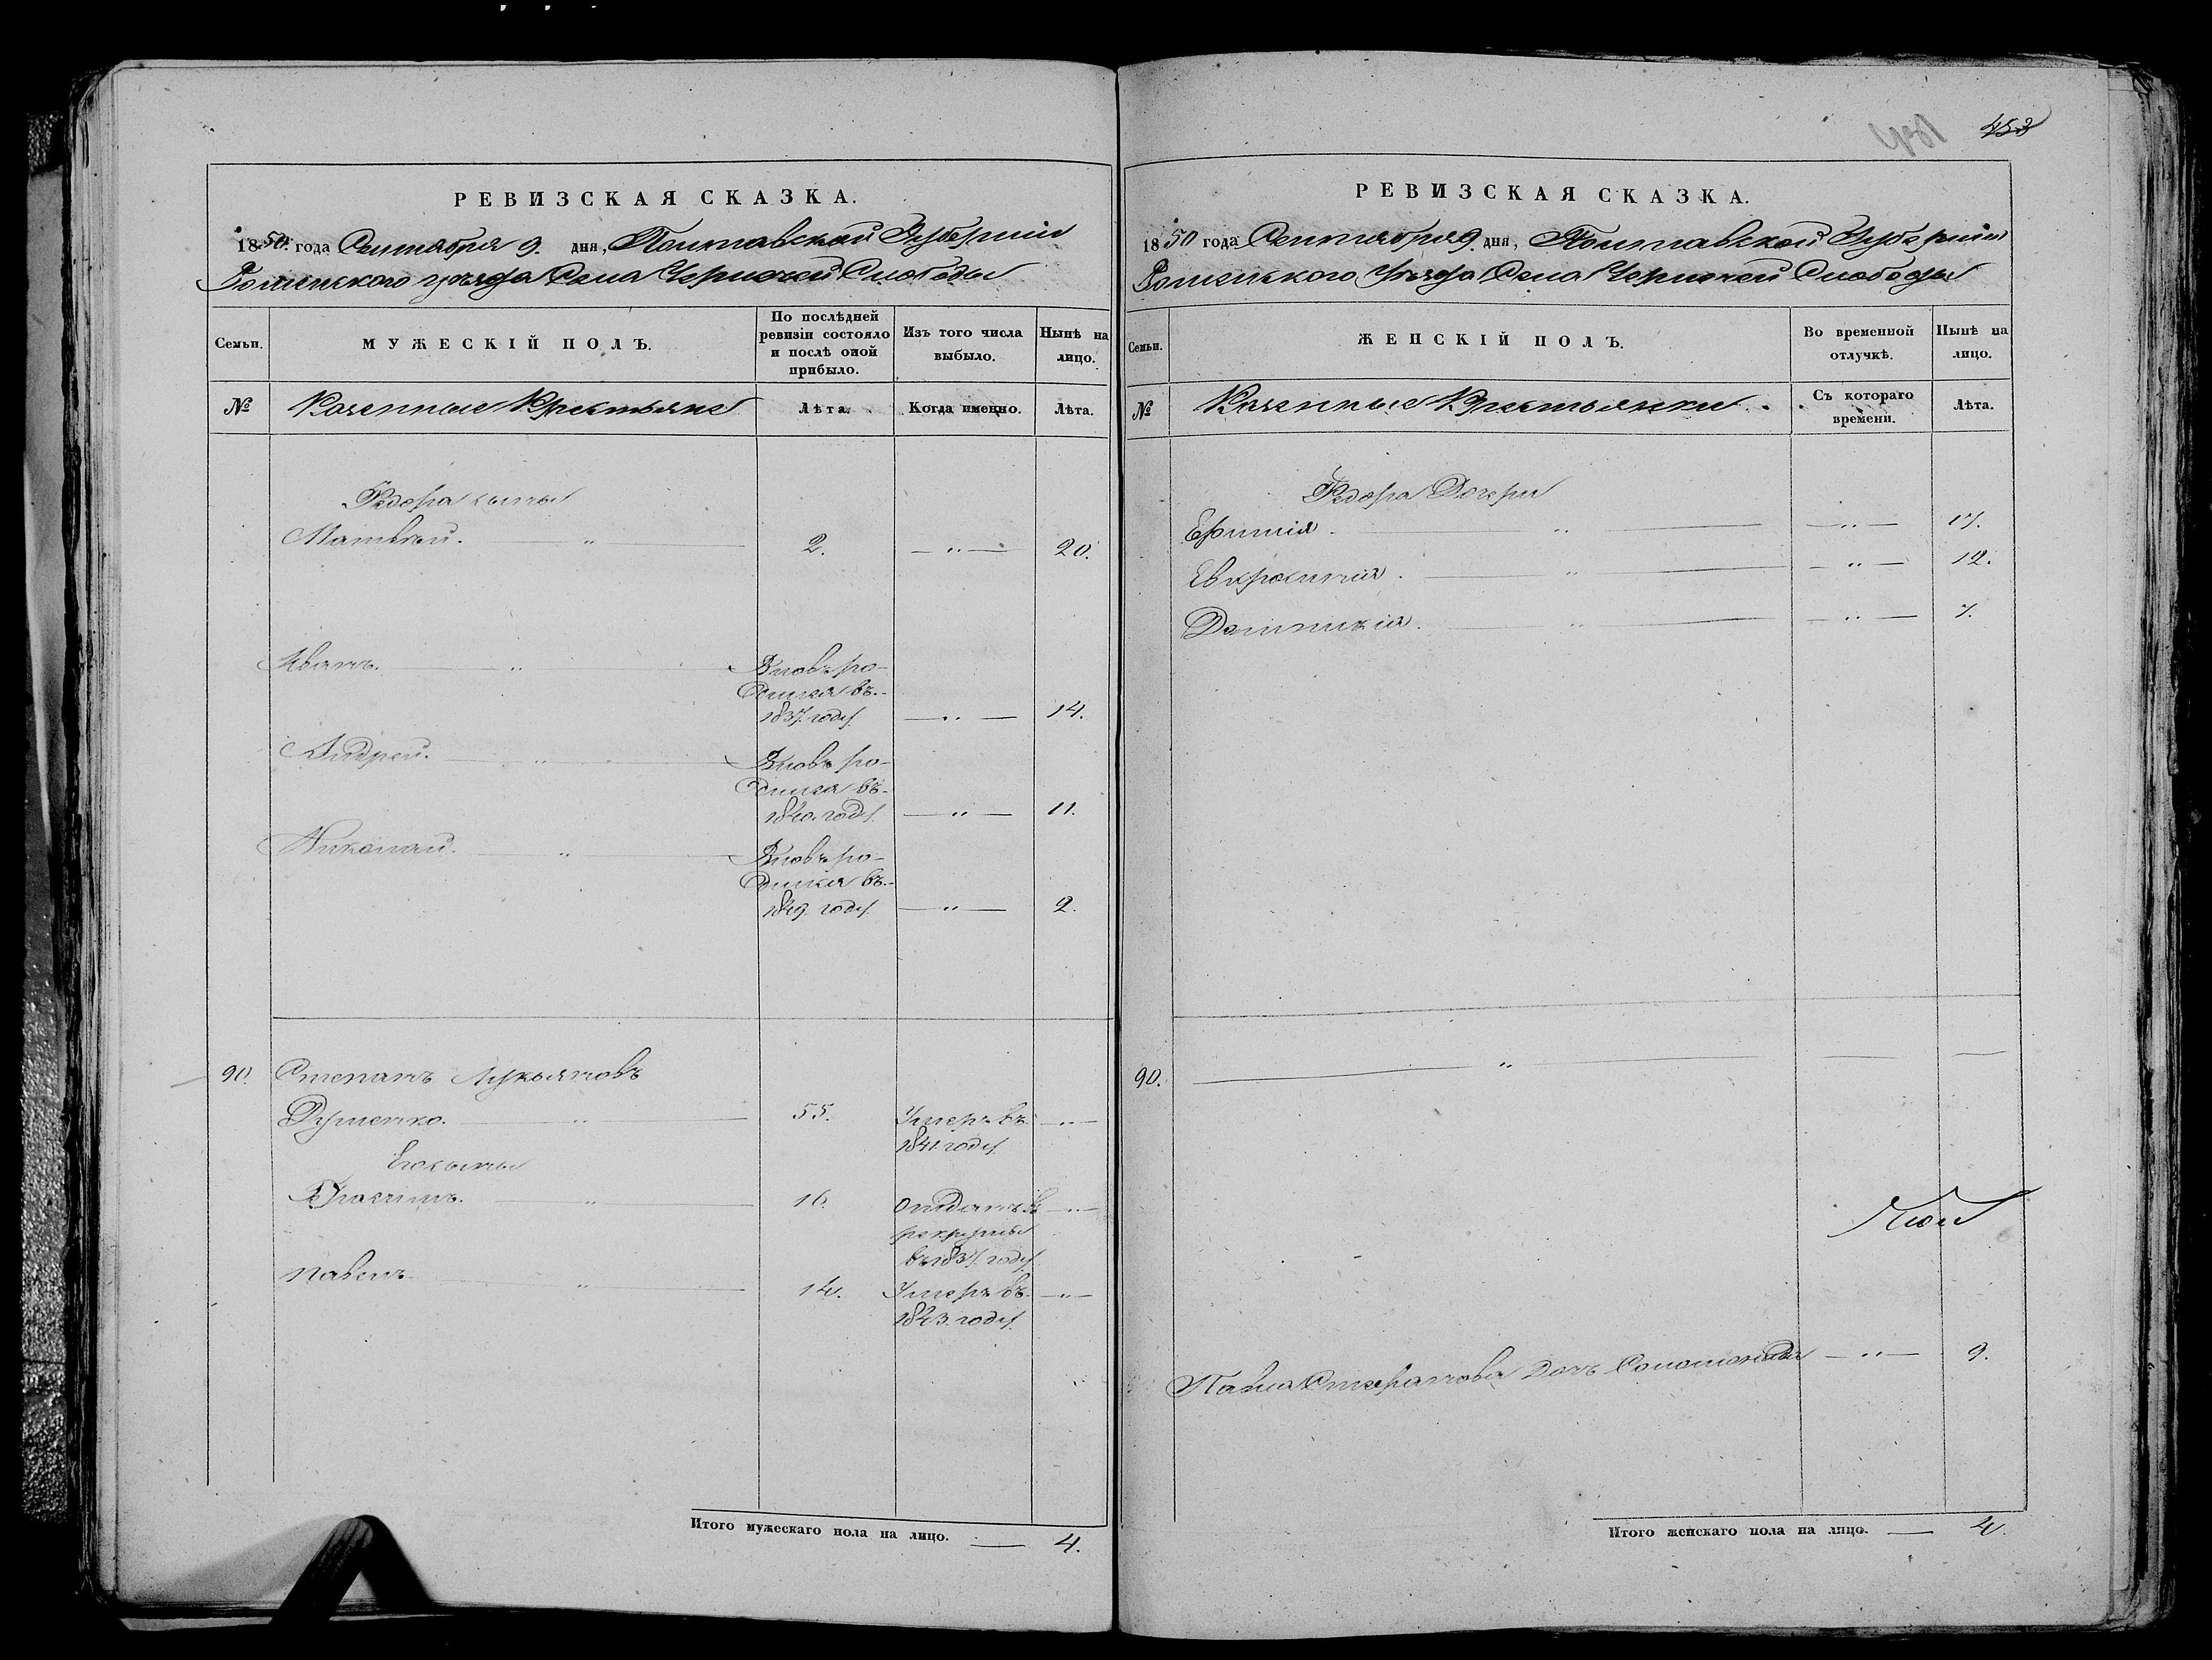 РЕВИЗСКАЯ СКАЗКА.
1850. года Сентября 9. дня, Полтавской Губернiи
Роменского уѣзда Села Чернечей Слободы
Семьи.
МУЖЕСКІЙ ПОЛЪ.
По послѣдней ревизіи состояло и послѣ оной прибыло.
Изъ того числа выбыло.
Нынѣ на лицо.
№
Казенные Крестьяне
Лѣта.
Когда именно.
Лѣта.
Федора сыны
Матвѣй. — „ — 2. — „ — 20.
Иванъ. — „ — Вновь ро-
дился въ
1837. году — „ — 14.
Андрей. — „ — Вновь ро-
дился въ
1840. году — „ — 11.
Николай. — „ — Вновь ро-
дился въ
1849. году — „ — 2.
90. Степанъ Лукьяновъ
Руменко. — „ — 55. Умеръ въ — „ —
1841. году
Его сыны
— „ — 16. отданъ въ — „ —
рекруты
въ 1837. году
Павелъ — „ — 14. Умеръ въ — „ —
1843. году
Итого мужескаго пола на лицо. — 4.
453
РЕВИЗСКАЯ СКАЗКА.
1850 года Сентября 9. дня, Полтавской Губернiи
Роменского Уѣзда Села Чернечей Слободы
Семьи.
ЖЕНСКІЙ ПОЛЪ.
Во временной отлучкѣ.
Нынѣ на лицо.
№
Казенные Крестьянки.
Съ котораго времени.
Лѣта.
Федора Дочери
Ефимія. — „ — — „ — 17.
Евфросинія. — „ — — „ — 12.
Домникія. — „ — — „ — 7.
90. — „ — — —
Павла Степанова Дочь Соломонида — „ — 9.
Итого женскаго пола на лицо. — 4.